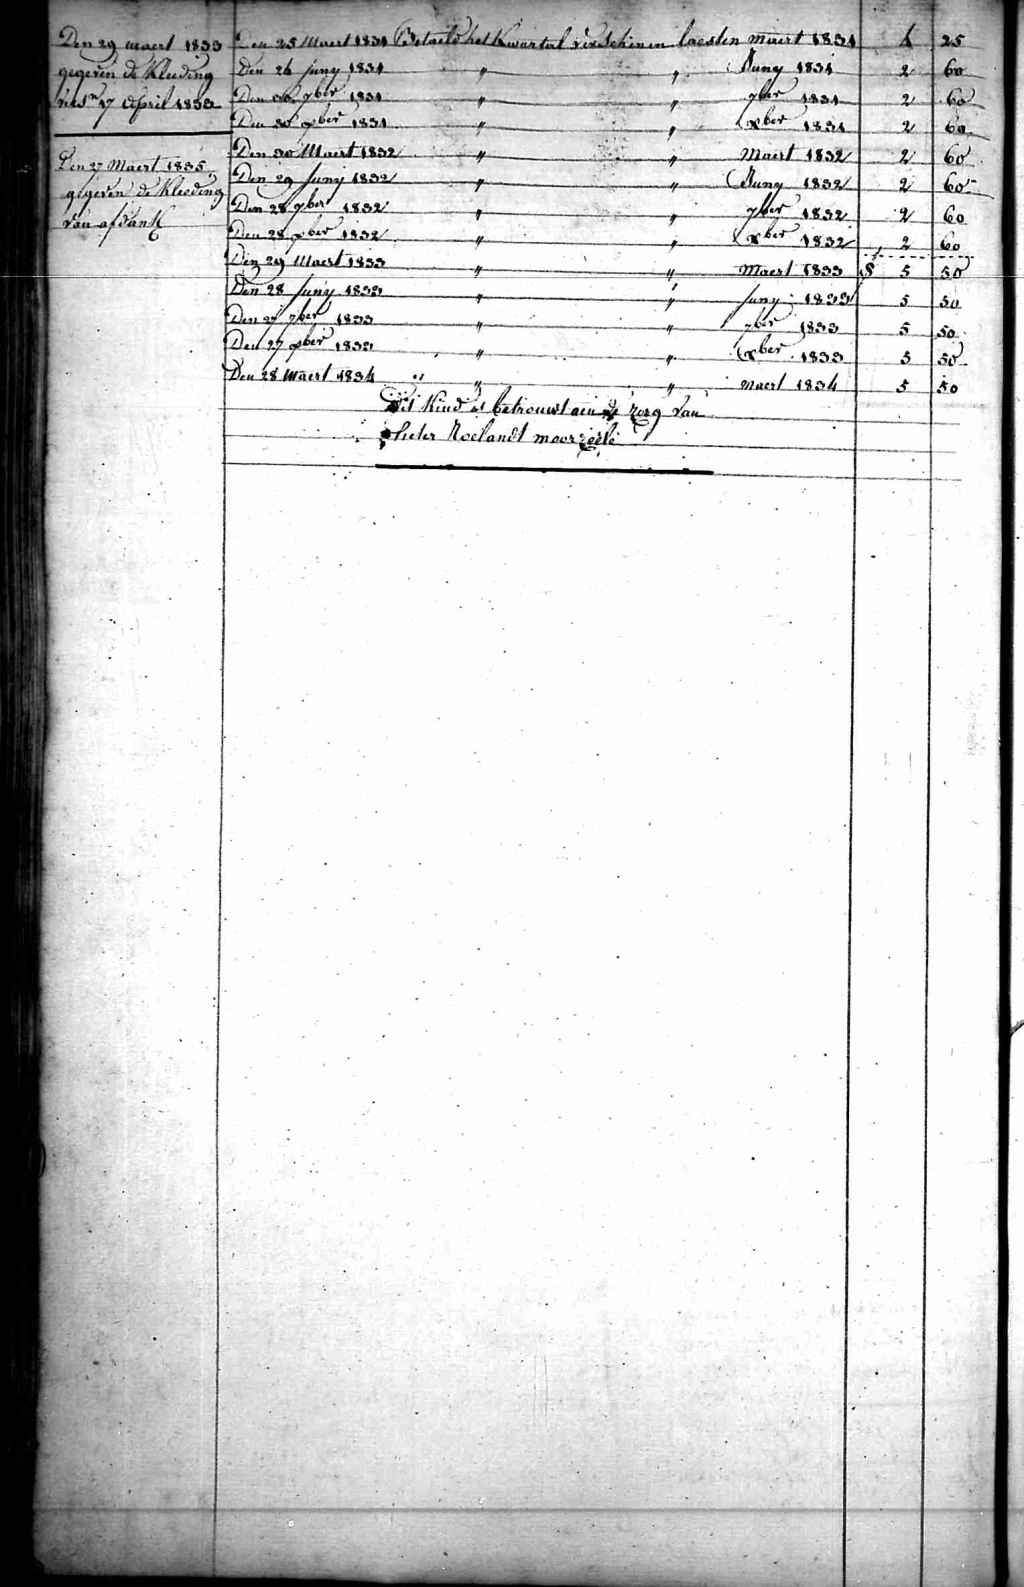 Den 29 maert 1833
gegeven de Kleeding
17 April 1833
Den 27 Maert 1835
gegeven de Kleeding
van afdank
Den 25 Maert 1831 Betaeld het Kwartal verschenen laesten maert 1831 4 25
Den 26 Juny 1831 " " Juny 1831 2 60
Den 30 7ber 1831 " " 7ber 1831 2 60
Den 30 xber 1831 " " xber 1831 2 60
Den 30 Maert 1832 " " Maert 1832 2 60
Den 29 Juny 1832 " " Juny 1832 2 60
Den 28 7ber 1832 " " 7ber 1832 2 60
Den 28 xber 1832 " " xber 1832 2 60
Den 29 Maert 1833 " " Maert 1833 5 50
Den 28 Juny 1833 " " Juny 1833 5 50
Den 27 7ber 1833 " " 7ber 1833 5 50
Den 27 xber 1833 " " xber 1833 5 50
Den 28 Maert 1834 " " Maert 1834 5 50
Dit Kind is betrouwt aen de zorg van
pieter Roelandt moorzeele